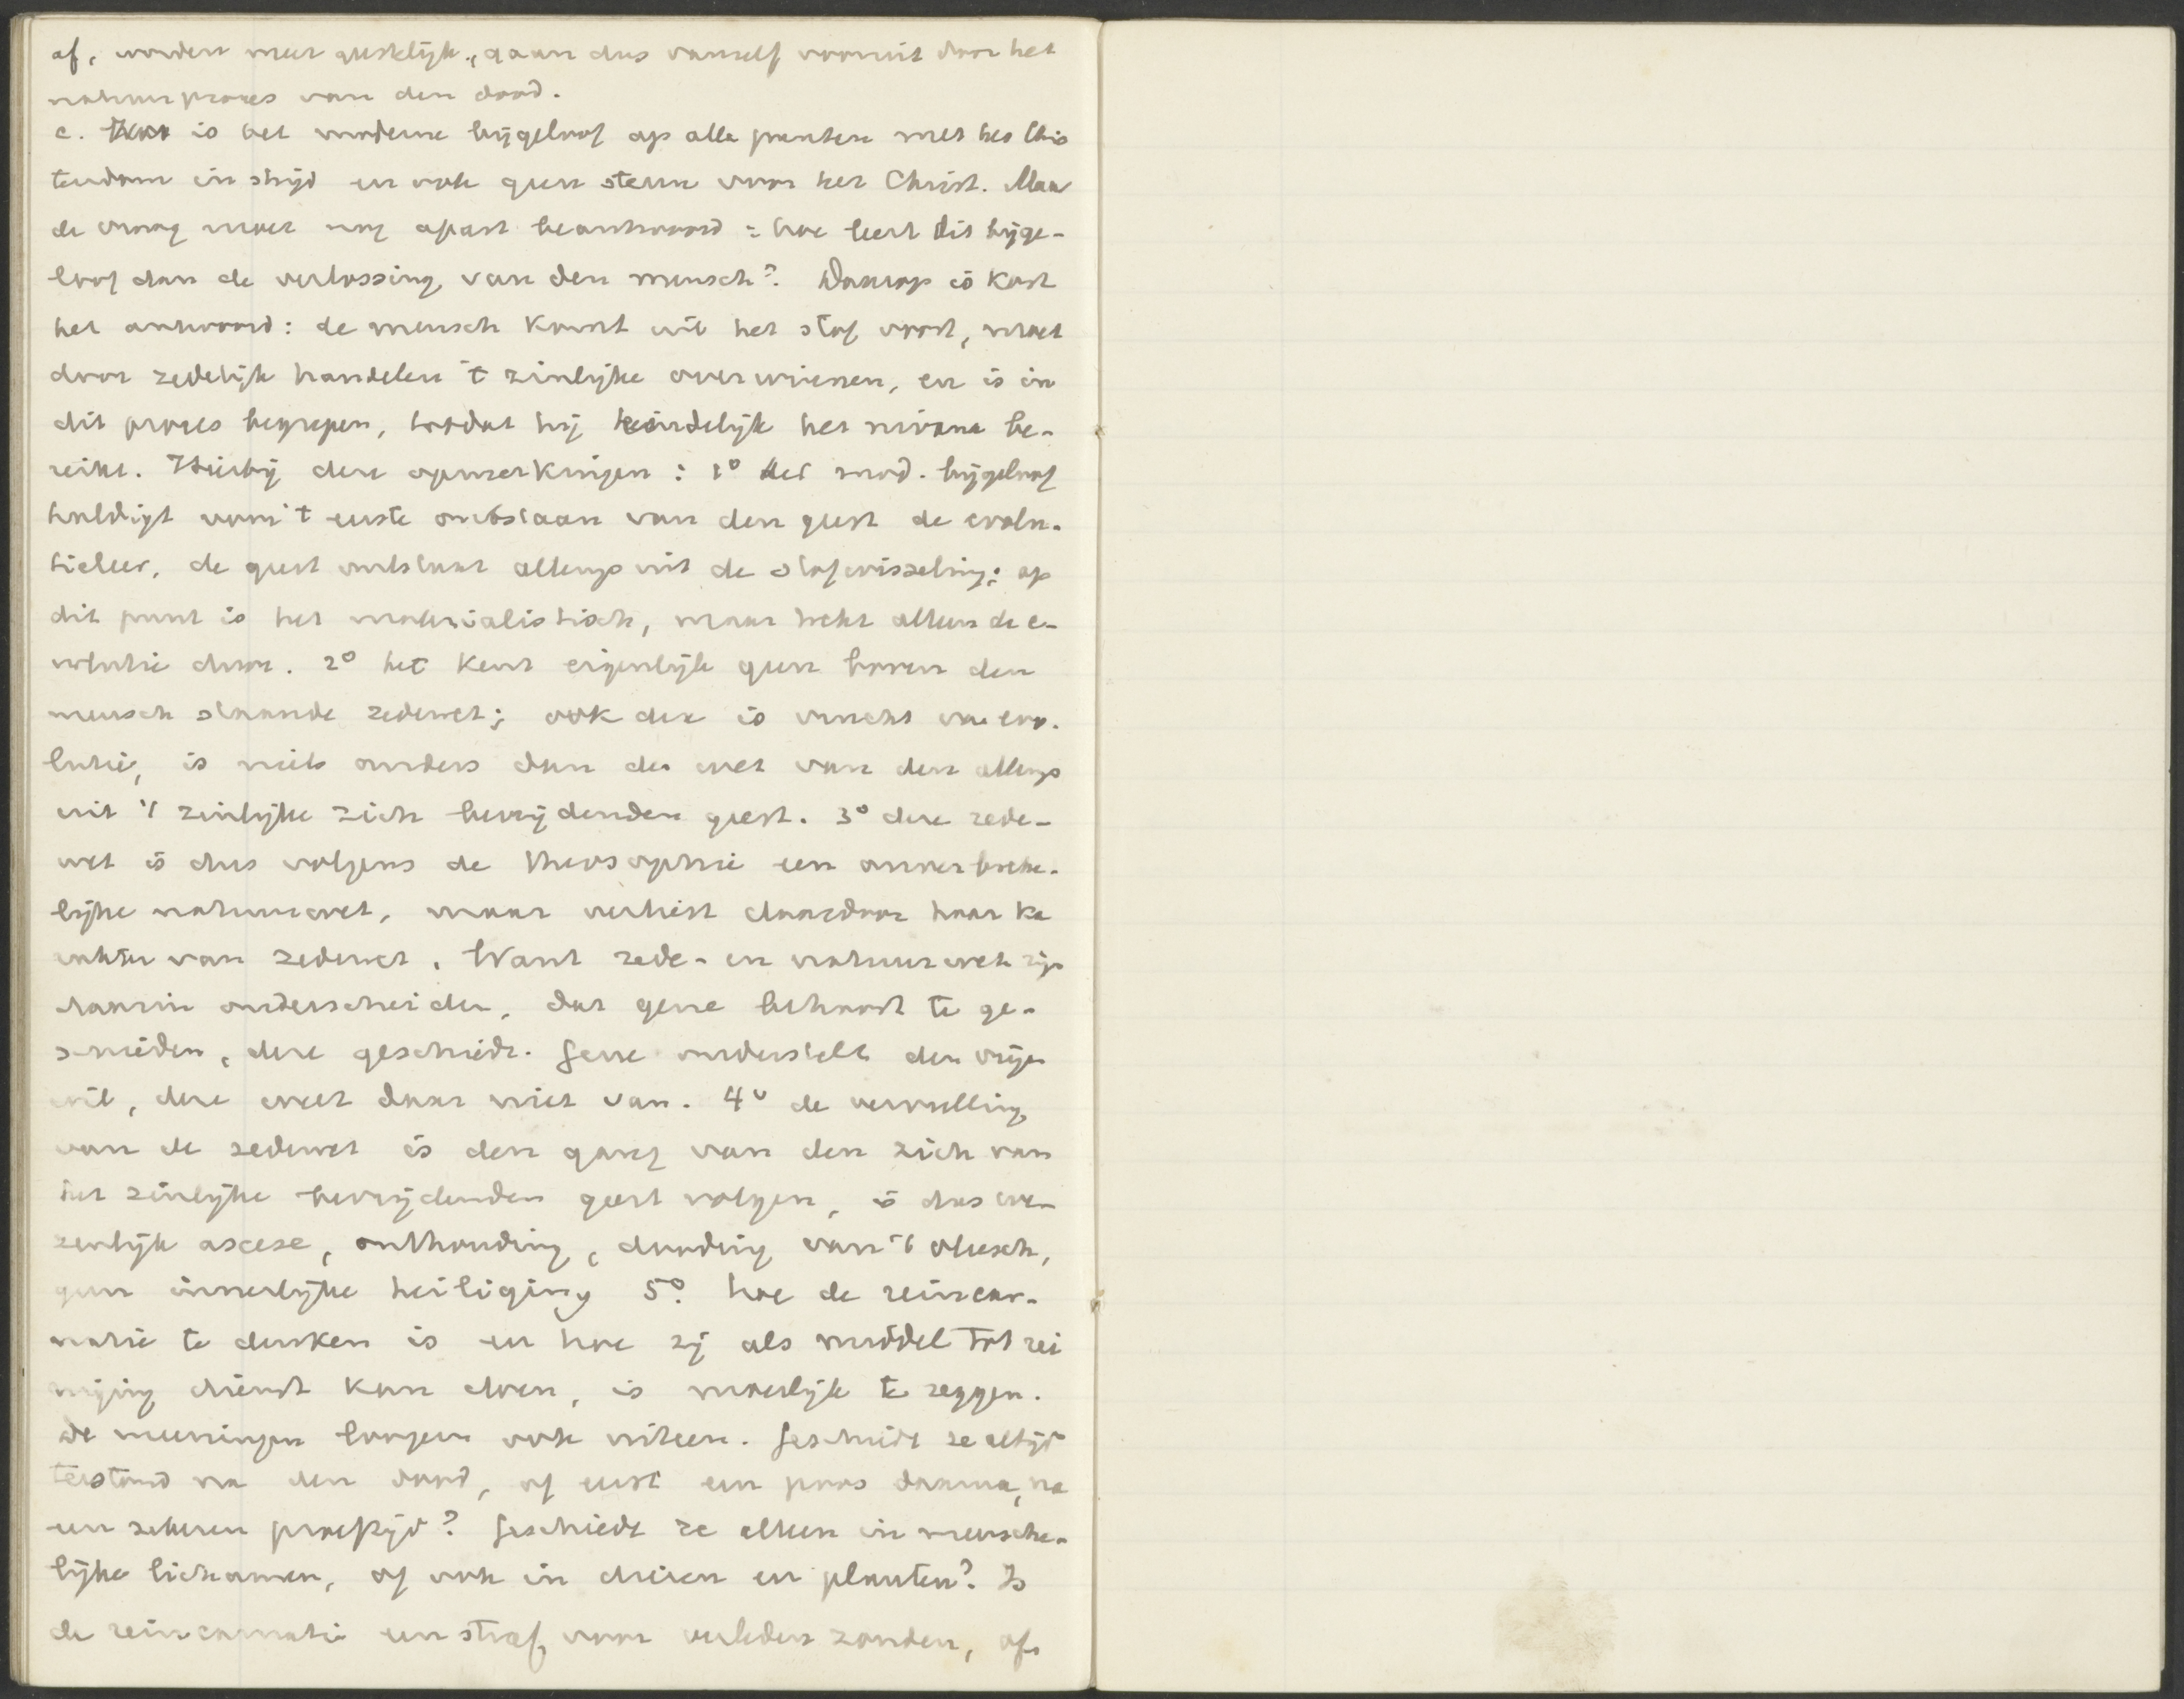 af, worden meer geestelijk, gaan dus vanzelf vooruit door het
natuurproces van den dood.
c. is het moderne bijgeloof op alle punten met het Chris
tendom in strijd en ook geen steun voor het Christ. Maar
de vraag moet nog apart beantwoord: hoe leert dit bijge-
loof dan de verlossing van den mensch? Daarop is kort
het antwoord: de mensch komt uit het stof voort, moet
door zedelijk handelen 't zinlijke overwinnen, en is in
dit proces begrepen, totdat hij eindelijk het nirvana be-
reikt. Hierbij deze opmerkingen: 1° het mod. bijgeloof
huldigt voor 't eerste ontstaan van den geest de evolu-
tieleer, de geest ontstaat allengs uit de stofwisseling; op
dit punt is het materialistisch, maar trekt alleen de e-
volutie door. 2° het kent eigenlijk geen boven den
mensch staande zedewet; ook deze is vrucht van evo-
lutie, is niets anders dan de wet van den allengs
uit 't zinlijke zich bevrijdenden geest. 3° deze zede-
wet is dus volgens de theosophie een onverbreke-
lijke natuurwet, maar verliest daardoor haar ka
rakter van zedewet. Want zede- en natuurwet zijn
daarin onderscheiden, dat gene behoort te ge-
schieden, deze geschiedt. Gene onderstelt den vrijen
wil, deze weet daar niet van. 4° de vervulling
van de zedewet is den gang van den zich van
het zinlijke bevrijdenden geest volgen, is dus we-
zenlijk ascese, onthouding, dooding van 't vleesch,
geen innerlijke heiliging 5°. hoe de reincar-
natie te denken is en hoe zij als middel tot rei
niging dienst kan doen, is moeilijk te zeggen.
de meeningen loopen ook uiteen. Geschiedt ze altijd
terstond na den dood, of eerst een poos daarna, na
een zekeren proeftijd? Geschiedt ze alleen in mensche-
lijke lichamen, of ook in dieren en planten? Is
de reincarnatie een straf voor verleden zonden, of